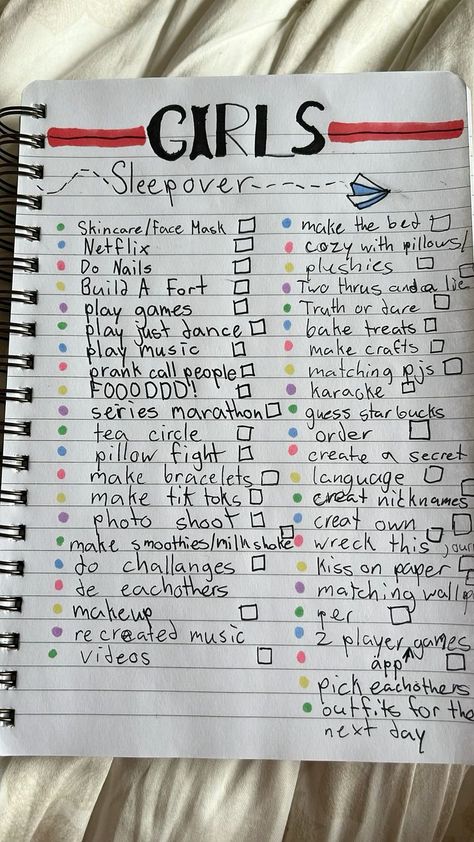 GIRLS
Sleepover
Skincare/Face Mask
Netflix
Do Nails
Build A Fort
play games
play just dance
play music
prank call people
FOOODDD!
series marathon
tea circle
pillow fight
make bracelets
make tik toks
photo shoot
make smoothies/milkshake
do challanges
de eachothers
makeup
recreated music
videos
make the bed
cozy with pillows/
plushies
Two thrus and a lie
Truth or dare
bake treats
make crafts
matching pjs
karaoke
guess starbucks
order
create a secret
language
creat nicknames
creat own
wreck this jour
kiss on paper
matching wallpa
per
2 player games
app
pick eachothers
outfits for the
next day